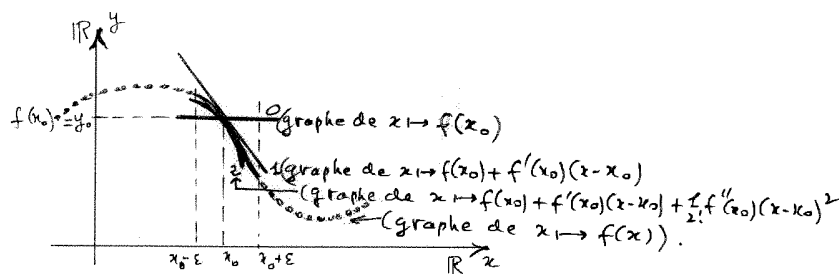 ℝ y
f(x₀)=y₀
0 (graphe de x ↦ f(x₀)
1 (graphe de x ↦ f(x₀) + f'(x₀)(x-x₀)
2 (graphe de x ↦ f(x₀) + f'(x₀)(x-x₀) + 1/2! f''(x₀)(x-x₀)²
(graphe de x ↦ f(x)).
x₀-ε x₀ x₀+ε ℝ x